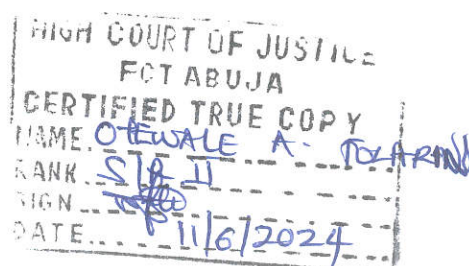 HIGH COURT OF JUSTICE
FCT ABUJA
CERTIFIED TRUE COPY
NAME. OTEWALE A.
RANK
SIGN
DATE... 11/6/2024